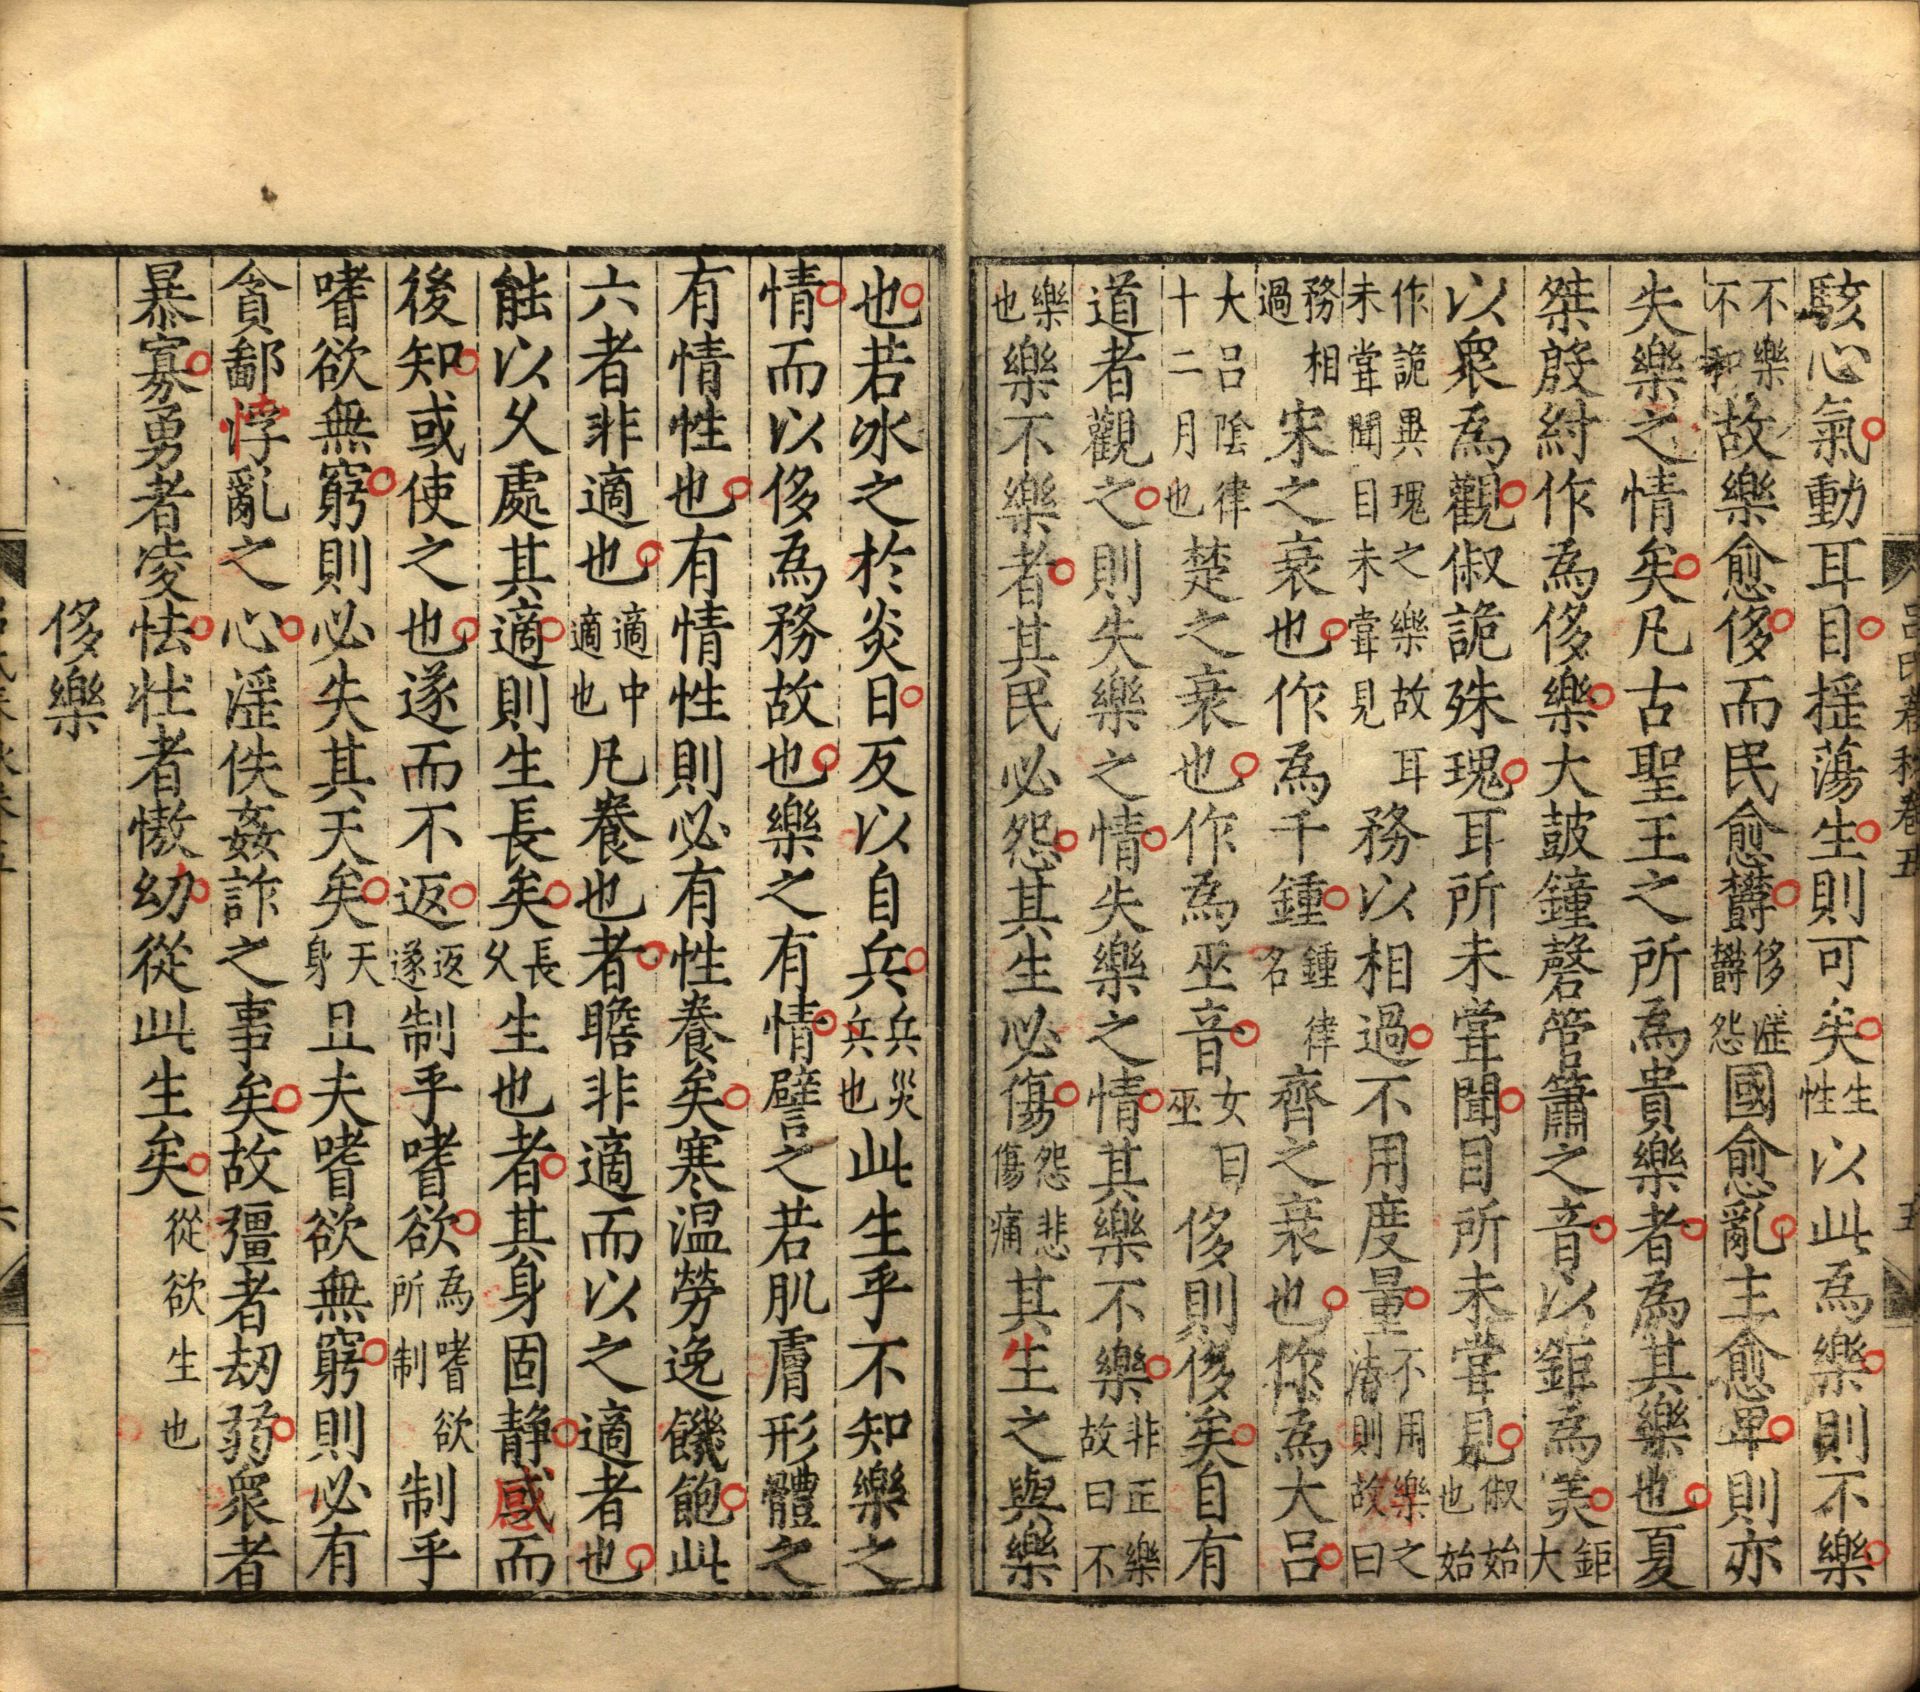 駭心氣動耳目搖蕩生則可矣生性以此為樂則不樂
不樂不和故樂愈侈而民愈鬱侈淫鬱怨國愈亂主愈卑則亦
失樂之情矣凡古聖王之所為貴樂者為其樂也夏
桀殷紂作為侈樂大鼓鐘磬管簫之音以鉅為美鉅大
以衆為觀俶詭殊瑰耳所未甞聞目所未甞見俶始也始
作詭異瑰之樂故耳未甞聞目未甞見務以相過不用度量不用樂之法則故曰
務相過宋之衰也作為千鍾鍾律名齊之衰也作為大呂
大呂陰律十二月也楚之衰也作為巫音女曰巫侈則侈矣自有
道者觀之則失樂之情失樂之情其樂不樂非正樂故曰不
樂也樂不樂者其民必怨其生必傷怨悲傷痛其生之與樂
也若冰之於炎日反以自兵兵災兵也此生乎不知樂之
情而以侈為務故也樂之有情譬之若肌膚形體之
有情性也有情性則必有性養矣寒温勞逸饑飽此
六者非適也適中適也凡養也者瞻非適而以之適者也
能以乆處其適則生長矣長乆生也者其身固靜感而
後知或使之也遂而不返返遂制乎嗜欲為嗜欲所制制乎
嗜欲無窮則必失其天矣天身且夫嗜欲無窮則必有
貪鄙悖亂之心淫佚姦詐之事矣故彊者劫弱衆者
暴寡勇者凌怯壯者慠幼從此生矣從欲生也
侈樂
呂氏春秋卷五 五